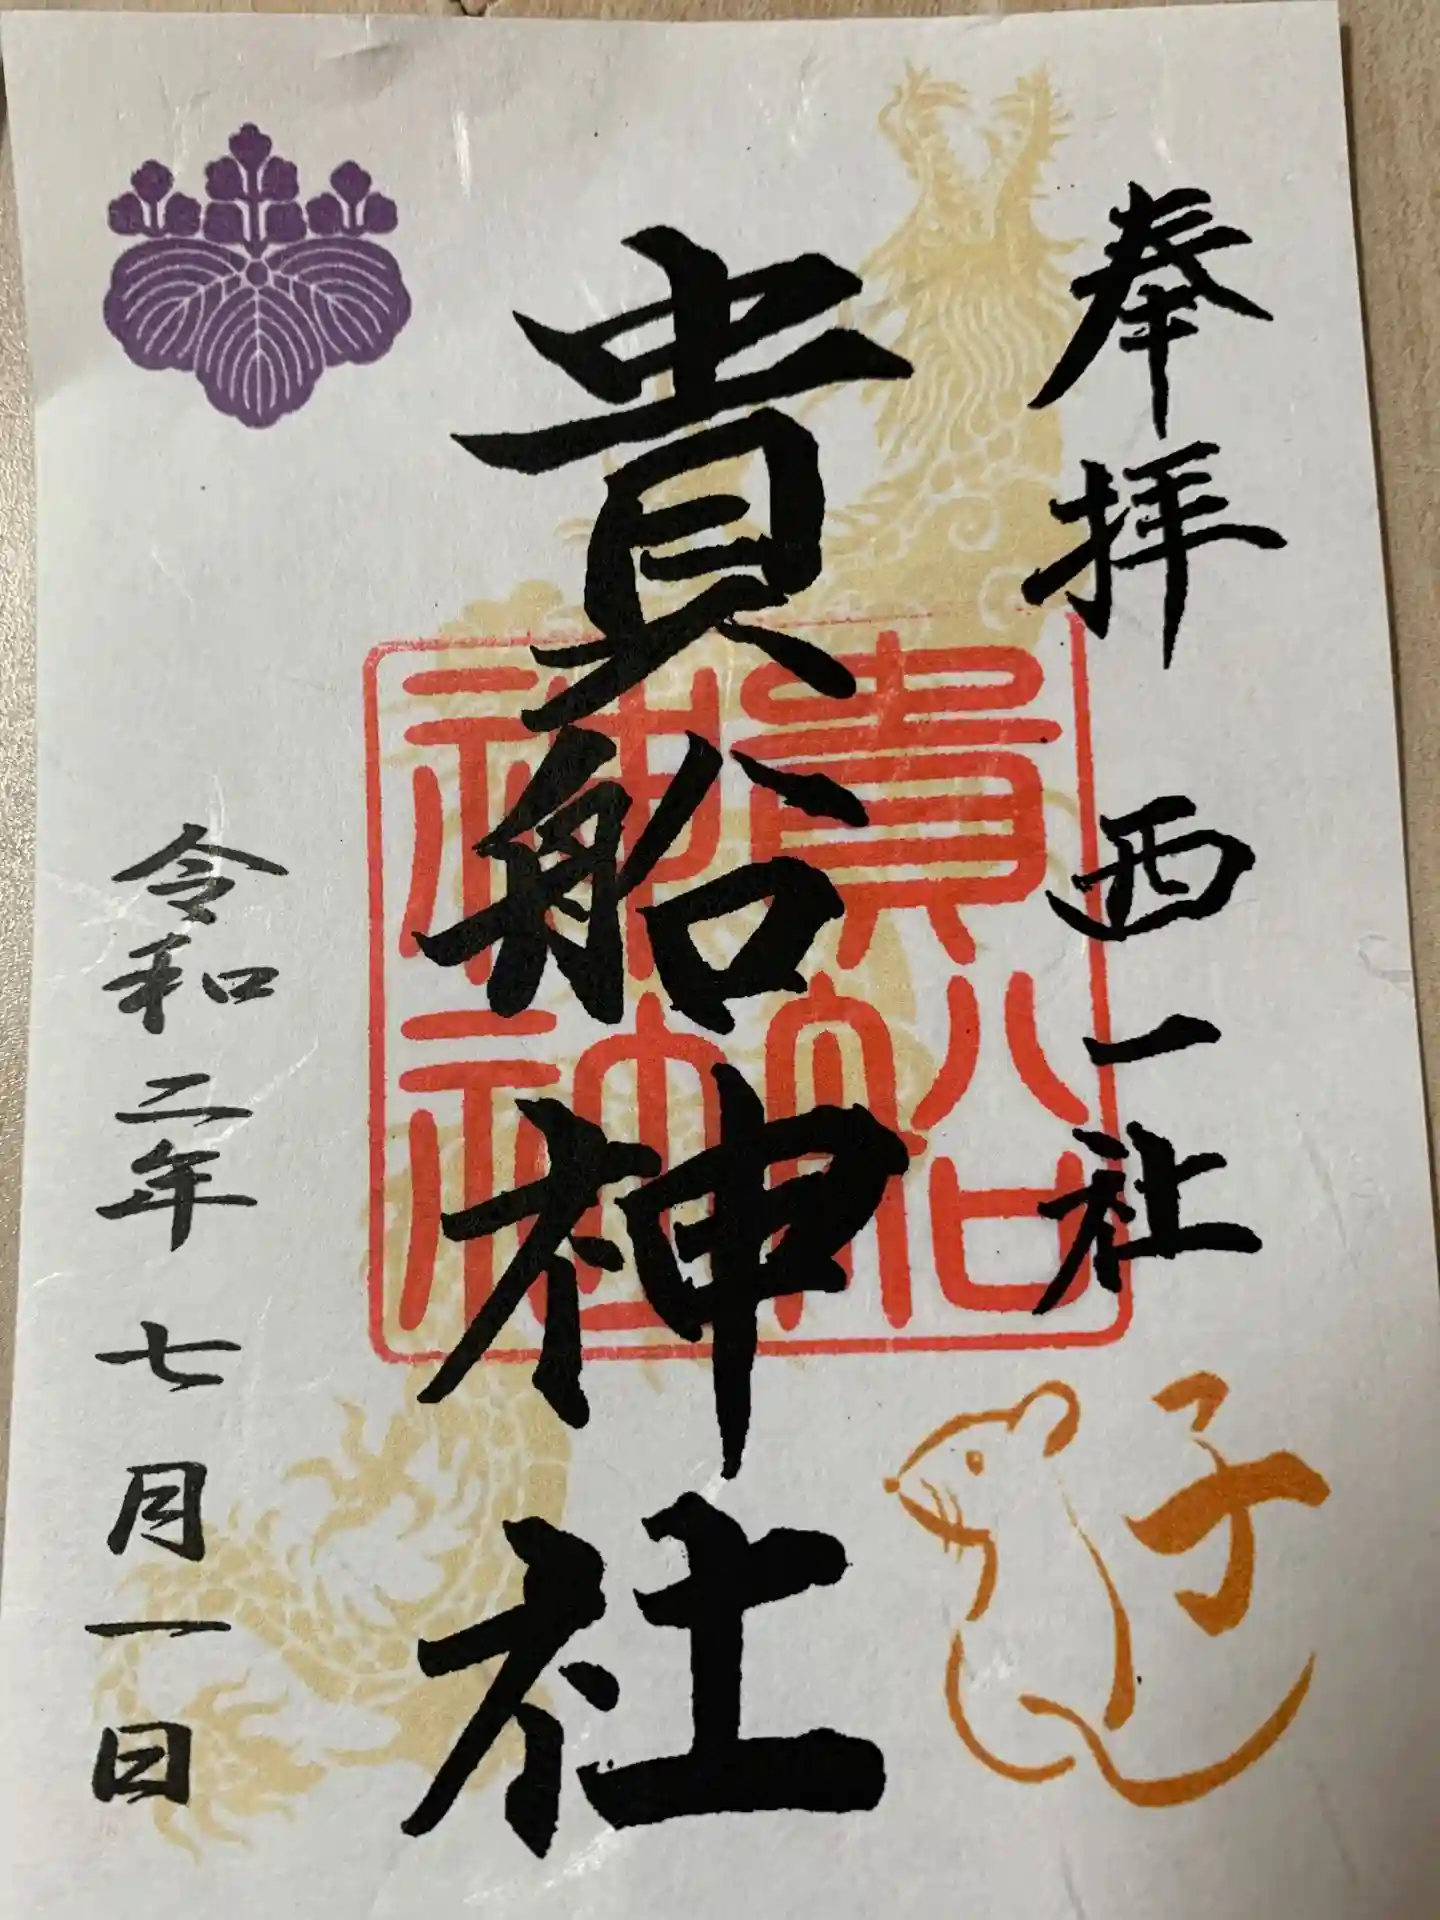 奉拝 西一社
貴船神社
貴船
神社
子
令和二年七月一日